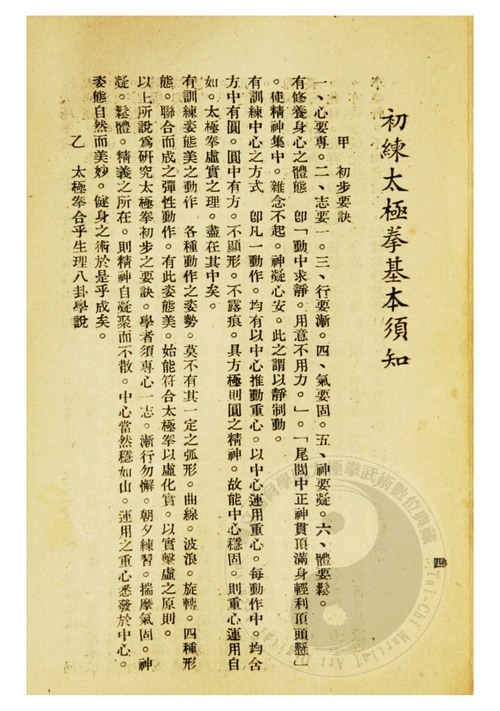 初練太極拳基本須知
甲 初步要訣
一、心要專。二、志要一。三、行要漸。四、氣要固。五、神要凝。六、體要鬆。
有修養身心之體態 卽「動中求靜。用意不用力。」。「尾閭中正神貫頂滿身輕利頂頭懸」
。使精神集中。雜念不起。神凝心安。此之謂以靜制動。
有訓練中心之方式 卽凡一動作。均有以中心推動重心。以中心運用重心。每動作中。均含
方中有圓。圓中有方。不顯形。不露痕。具方極則圓之精神。故能中心穩固。則重心運用自
如。太極拳虛實之理。盡在其中矣。
有訓練姿態美之動作 各種動作之姿勢。莫不有其一定之弧形。曲線。波浪。旋轉。四種形
態。聯合而成之彈性動作。有此姿態美。始能符合太極拳以虛化實。以實擊虛之原則。
以上所說爲硏究太極拳初步之要訣。學者須專心一志。漸行勿懈。朝夕練習。揣摩氣固。神
凝。鬆體。精義之所在。則精神自凝聚而不散。中心當然穩如山。運用之重心悉發於中心。
姿態自然而美妙。健身之術於是乎成矣。
乙 太極拳合乎生理八卦學說
四
極拳武術數位典藏
Tai-Chi Martial Art